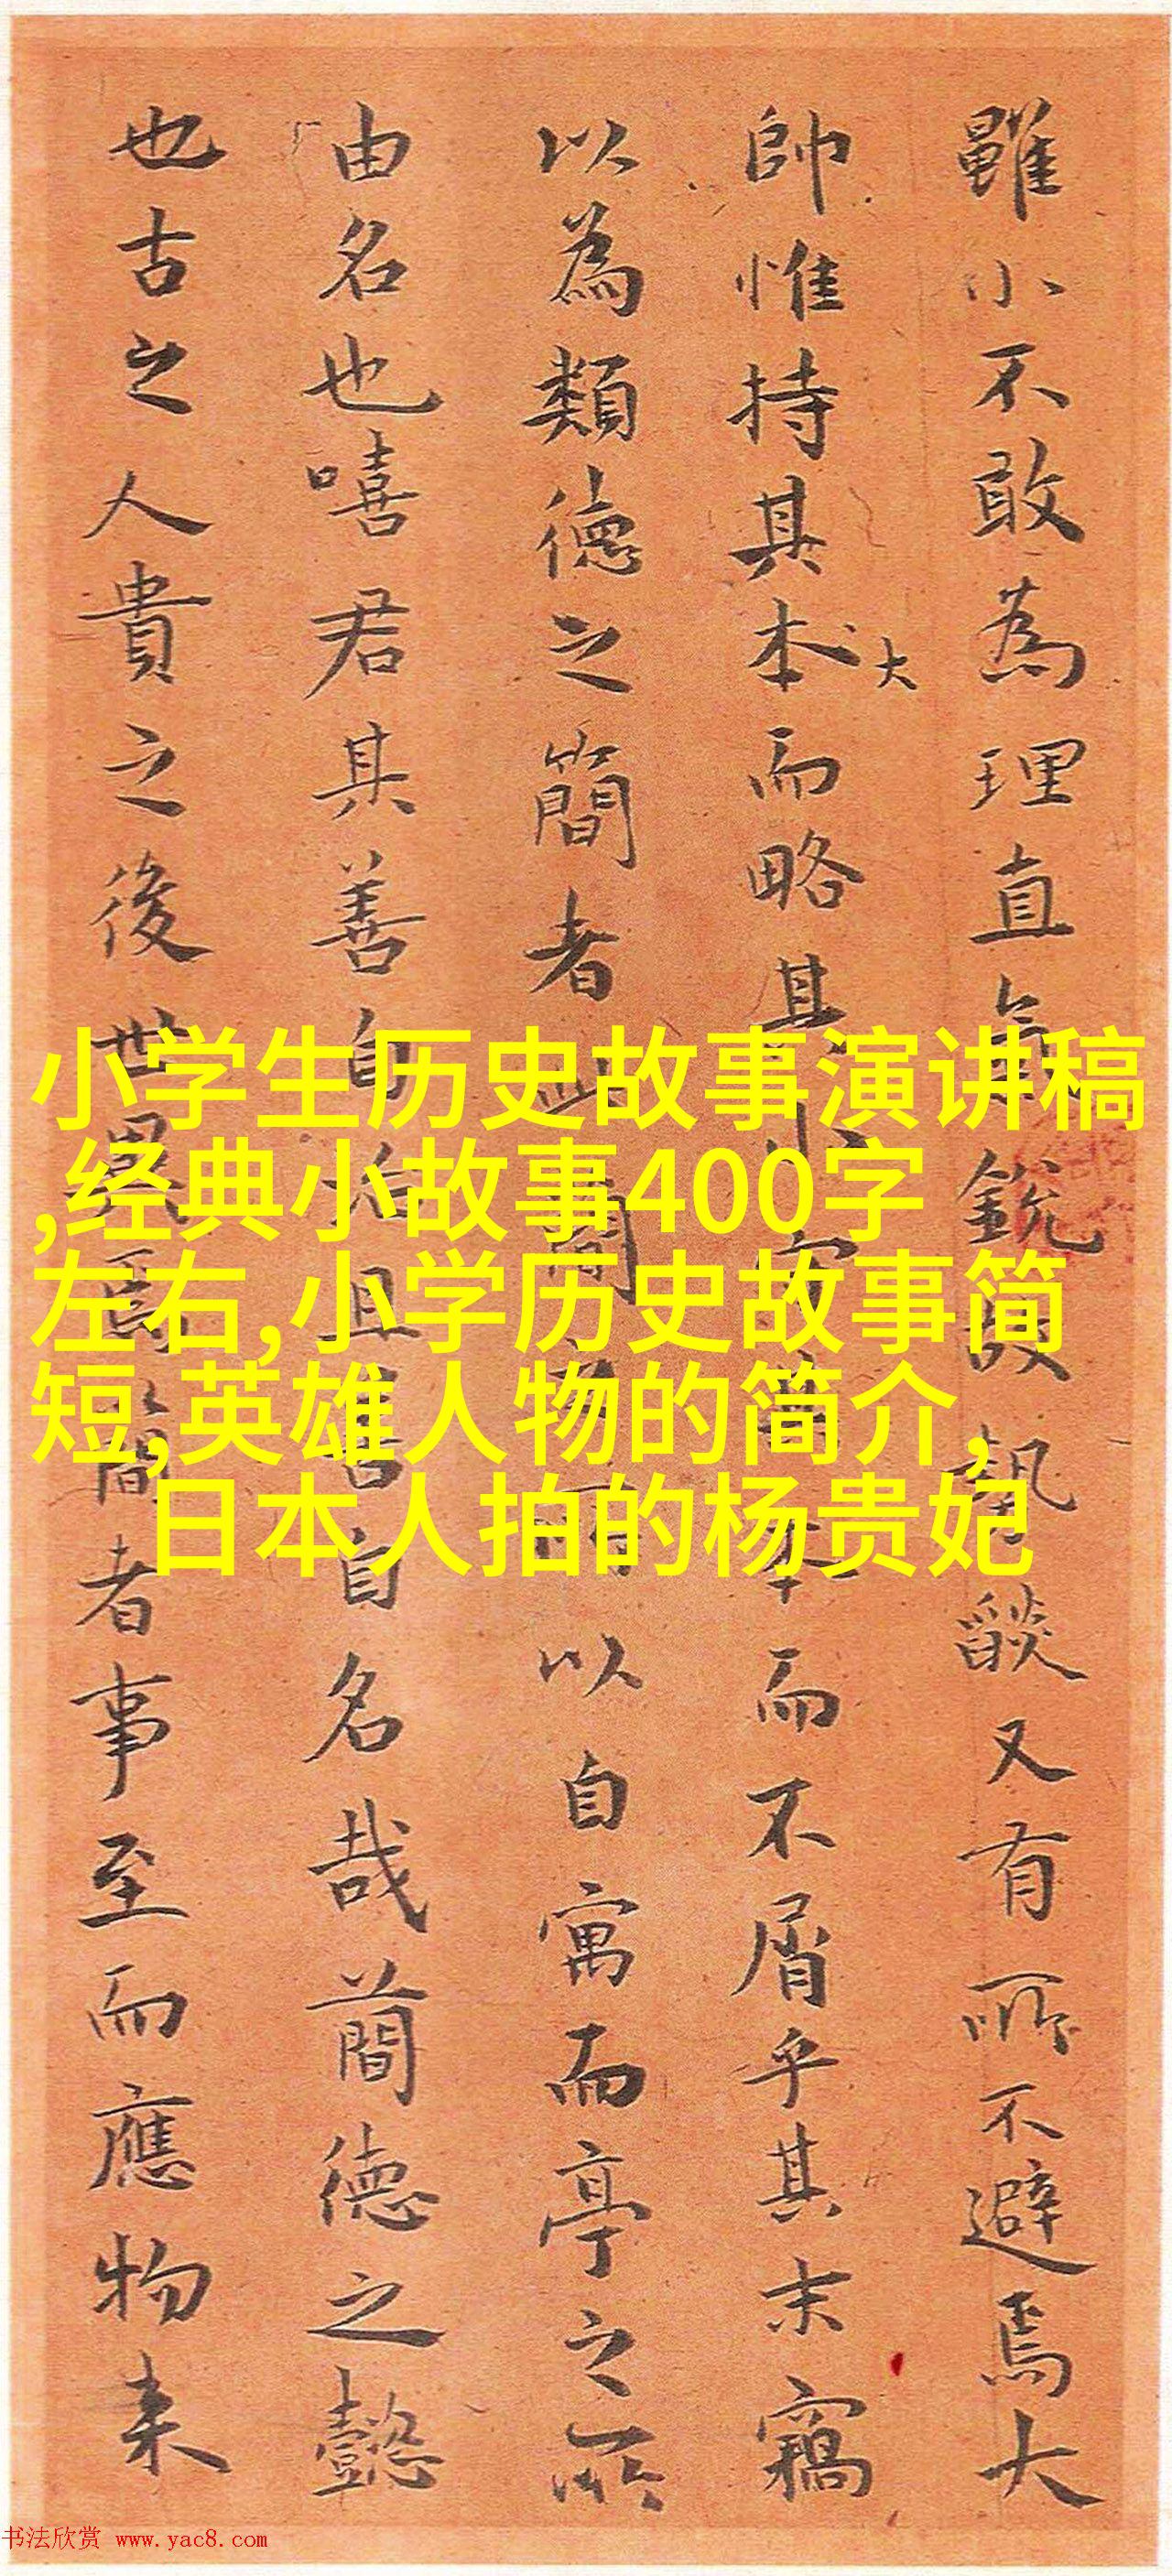 雖小不敢為理直氣銳
執燄又有所不避焉大
帥惟持其本大而略其小
本而不屑乎其末竊
以為類德之簡者
以自寓而亭之所
由名也嘻君其善自
自名哉簡德之懿
也古之人貴之後世
簡者事至而應物来
小学生历史故事演讲稿
,经典小故事400字
左右,小学历史故事简
短,英雄人物的简介,
日本人拍的杨贵妃
书法欣赏 www.yac8.com